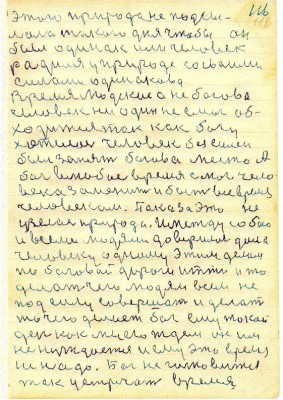 116
этого природа не подсы-
лала такого дня чтобы он
был одинак или человек
родился у природе со своими
силами одинакова
Время людское а не богово
человек ни один не смог об-
ходится так как богу
хотелось человек без
был занят богова место А
бог в любое время смог чело
века заменит и быт все время
человеком. Пока за это не
взялася природа. И между собою
и всеми людями довершил дела
человеку одному этим делом
по боговай дороги итти и то
делат чего людям всем не
под силу совершат и делат
то чего делает бог ему такой
ден как мы его ждем он им
не нуждается и ему это время
ни надо. Бог не готовится
так устричат время